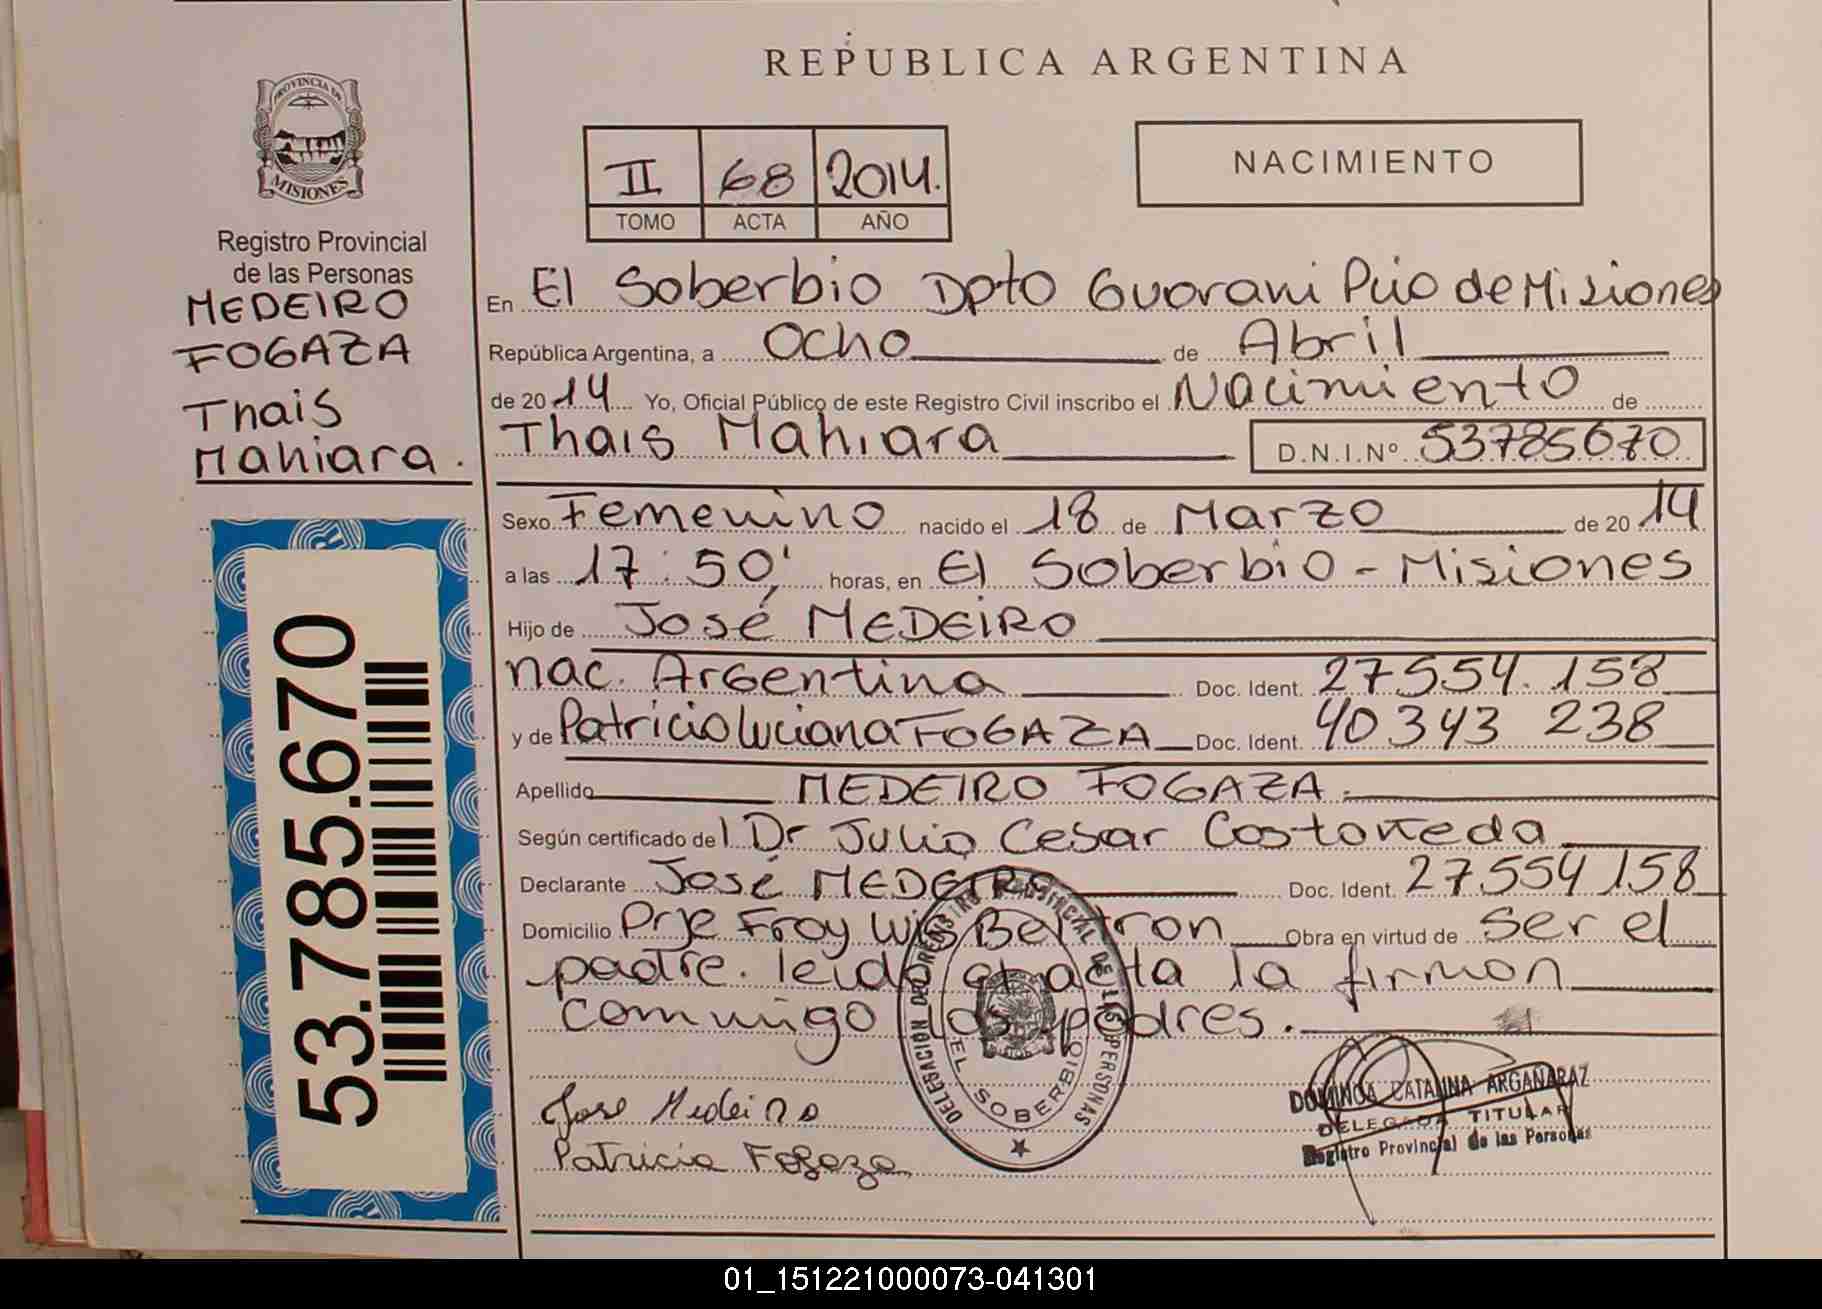 REPUBLICA ARGENTINA
PROVINCIA DE
MISIONES
Registro Provincial
de las Personas
MEDEIRO
FOGAZA
Thais
Mahiara.
53.785.670
II 68 2014.
TOMO ACTA AÑO
NACIMIENTO
En El Soberbio Dpto Guarani Pcio de Misiones
República Argentina, a Ocho de Abril
de 2014 Yo, Oficial Público de este Registro Civil inscribo el Nacimiento de
Thais Mahiara D.N.I.Nº 53785670
Sexo Femenino nacido el 18 de Marzo de 2014
a las 17:50' horas, en El Soberbio - Misiones
Hijo de José MEDEIRO
nac. Argentina Doc. Ident. 27554.158
y de Patricia Luciana FOGAZA Doc. Ident. 40343 238
Apellido MEDEIRO FOGAZA.
Según certificado del Dr Julio Cesar Castañeda
Declarante José MEDEIRO Doc. Ident. 27554158
Domicilio Prje Fray Luis Beltran Obra en virtud de ser el
padre. leida el acta la firman
conmigo los padres.
DELEGACIÓN DEL REGISTRO PROVINCIAL DE LAS PERSONAS
EL SOBERBIO
Jose Medeiro
Patricia Fogaza
DOMINGA CATALINA ARGAÑARAZ
DELEGADA TITULAR
Registro Provincial de las Personas
01_151221000073-041301